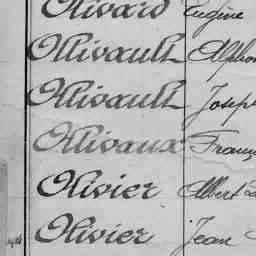 Olivard Eugène
Ollivault Alphon
Ollivault Joseph
Ollivaux Franç
Olivier Albert
Olivier Jean